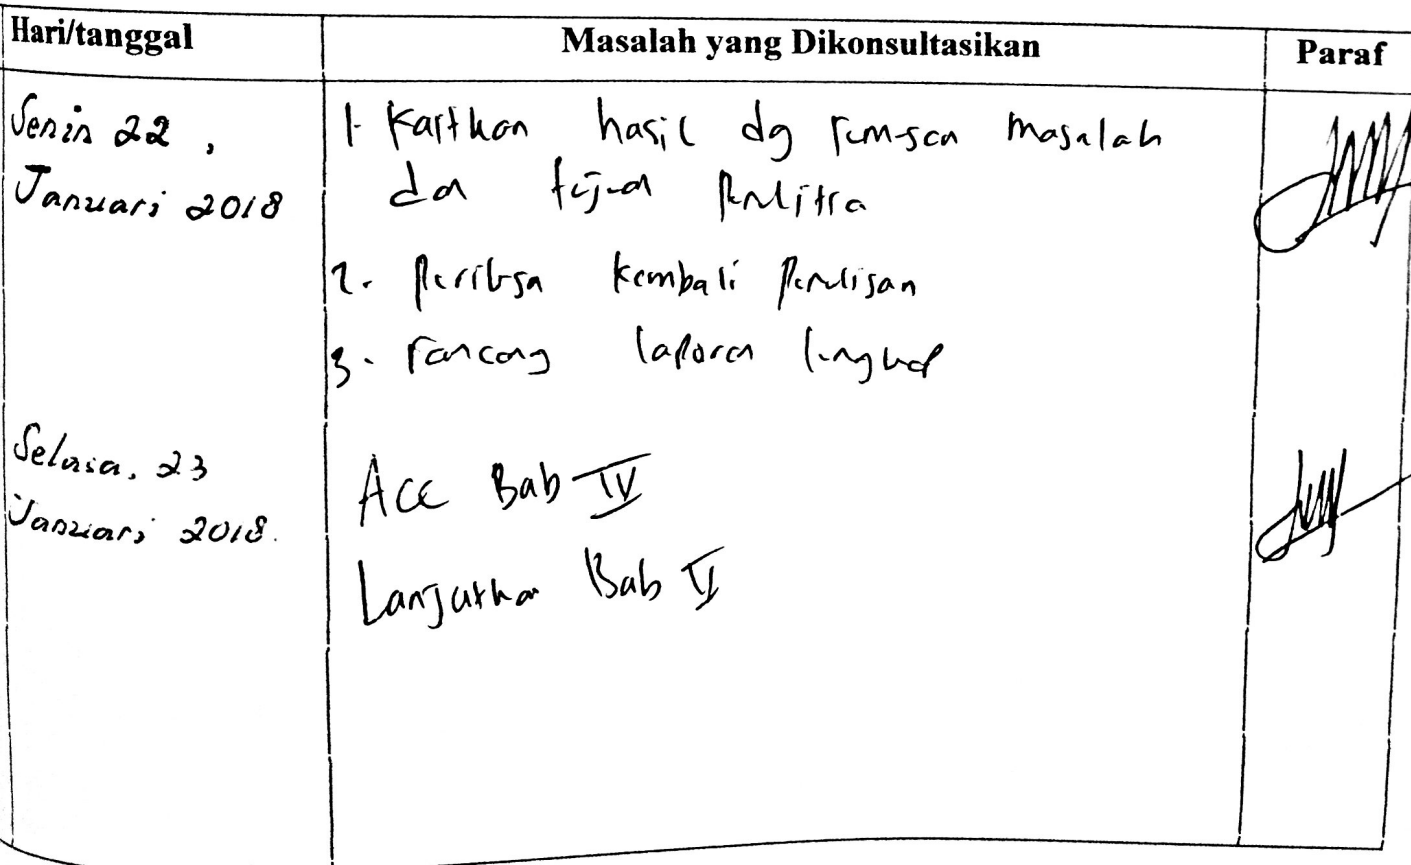 Hari/tanggal Masalah yang Dikonsultasikan Paraf
Senin 22 ,
Januari 2018
1. Kaitkan hasil dg rumusan masalah
dan tujuan Penelitian
2. Periksa kembali Penulisan
3. rancang laporan lengkap
Selasa, 23
Januari 2018.
Acc Bab IV
Lanjutkan Bab V